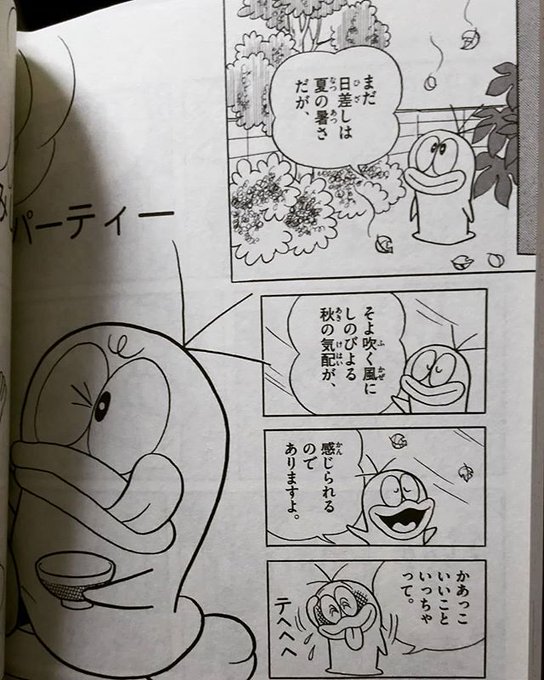 パーティー
まだ
日差しは
夏の暑さ
だが、
そよ吹く風に
しのびよる
秋の気配が、
感じられる
ので
ありますよ。
かあっこ
いいこと
いっちゃ
って。
テヘヘヘ